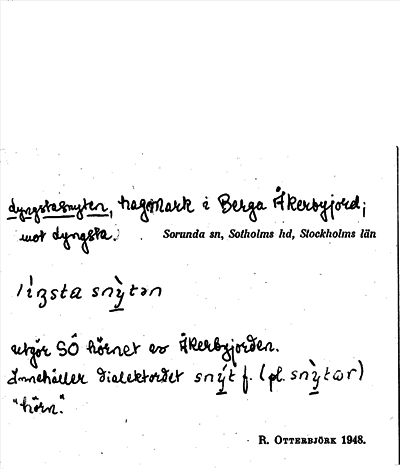 dyngstasnyten, hagmark i Berga Åkerbyjord;
mot dyngsta.
Sorunda sn, Sotholms hd, Stockholms län
snỳtən
utgör SÖ hörnet av Åkerbyjorden.
Innehåller dialektordet snýt f. (pl. snỳtər)
"hörn."
R. OTTERBJÖRK 1948.